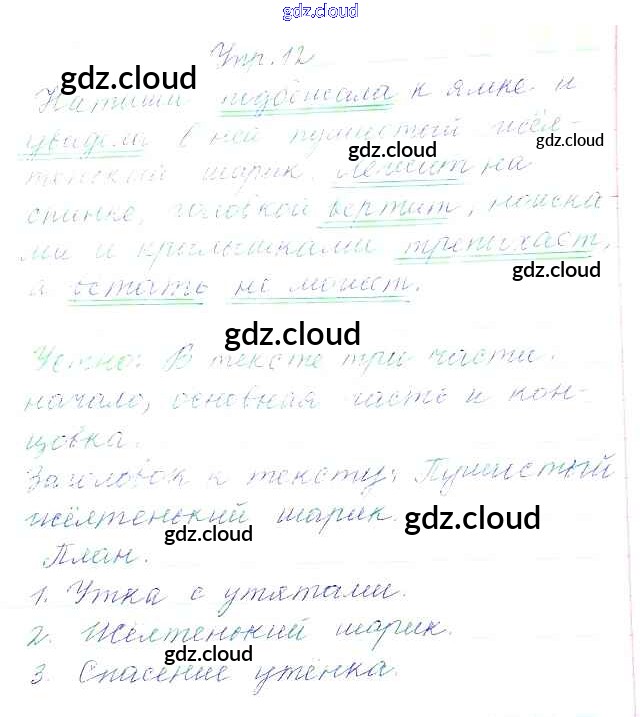 gdz.cloud
Упр. 12
gdz.cloud
Натиши подбежала к ямке и
увидела в ней пушистый жёл-
gdz.cloud
gdz.cloud
тенький шарик. Лежит на
спинке, головкой вертит, ножка-
ми и крылышками трепыхает,
gdz.cloud
а встать не может.
gdz.cloud
Устно: В тексте три части.
начало, основная часть и кон-
цовка.
Заголовок к тексту: Пушистый
жёлтенький шарик.
gdz.cloud
gdz.cloud
План.
1. Утка с утятами.
2. Жёлтенький шарик.
gdz.cloud
3. Спасение утёнка.